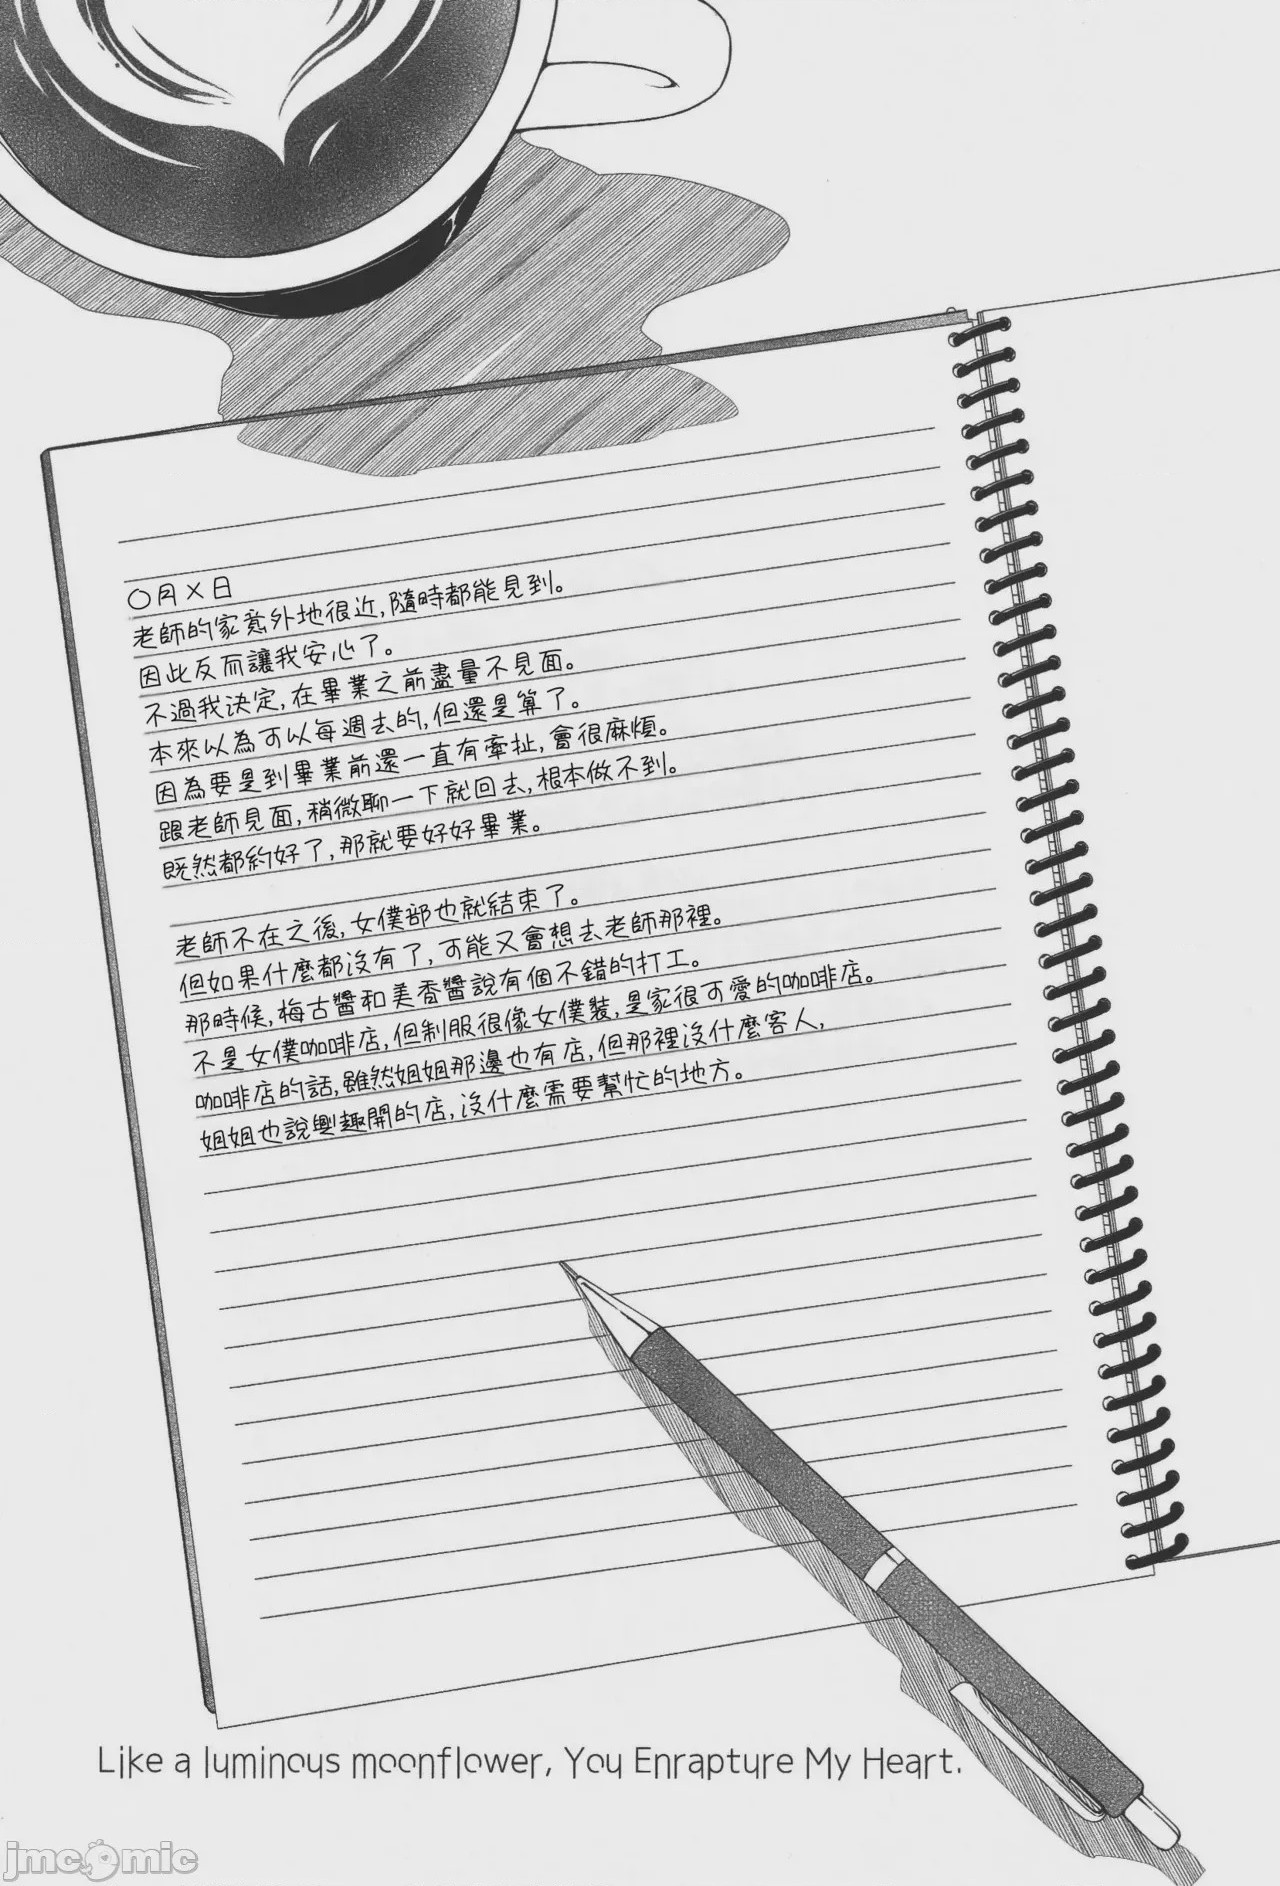 〇月×日
老師的家意外地很近,隨時都能見到。
因此反而讓我安心了。
不過我決定,在畢業之前盡量不見面。
本來以為可以每週去的,但還是算了。
因為要是到畢業前還一直有牽扯,會很麻煩。
跟老師見面,稍微聊一下就回去,根本做不到。
既然都約好了,那就要好好畢業。
老師不在之後,女僕部也就結束了。
但如果什麼都沒有了,可能又會想去老師那裡。
那時候,梅古醬和美香醬說有個不錯的打工。
不是女僕咖啡店,但制服很像女僕裝,是家很可愛的咖啡店。
咖啡店的話,雖然姐姐那邊也有店,但那裡沒什麼客人,
姐姐也說興趣開的店,沒什麼需要幫忙的地方。
Like a luminous moonflower, You Enrapture My Heart.
jmcomic